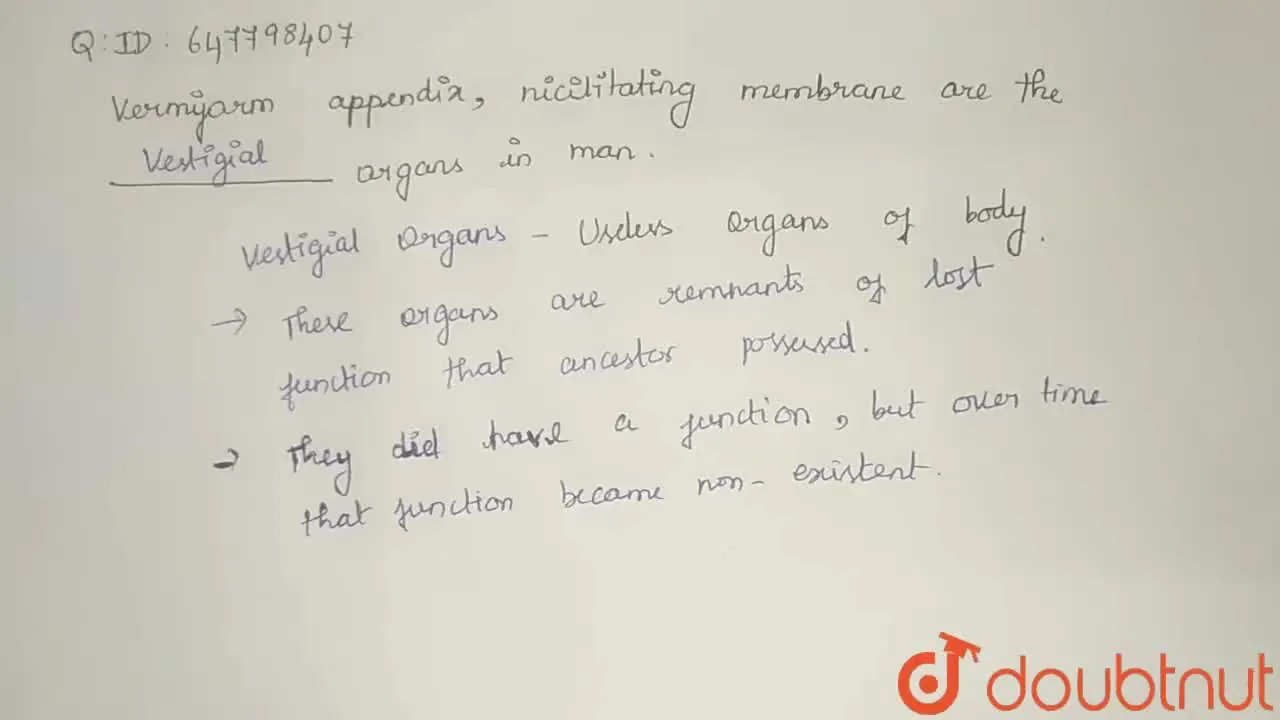 Q:ID: 647798407
Vermyarm appendix, nicilitating membrane are the
Vestigial organs in man.
Vestigial Organs - Useless Organs of body.
→ These organs are remnants of lost
function that ancestor possessed.
→ They did have a function, but over time
that function became non-existent.
doubtnut